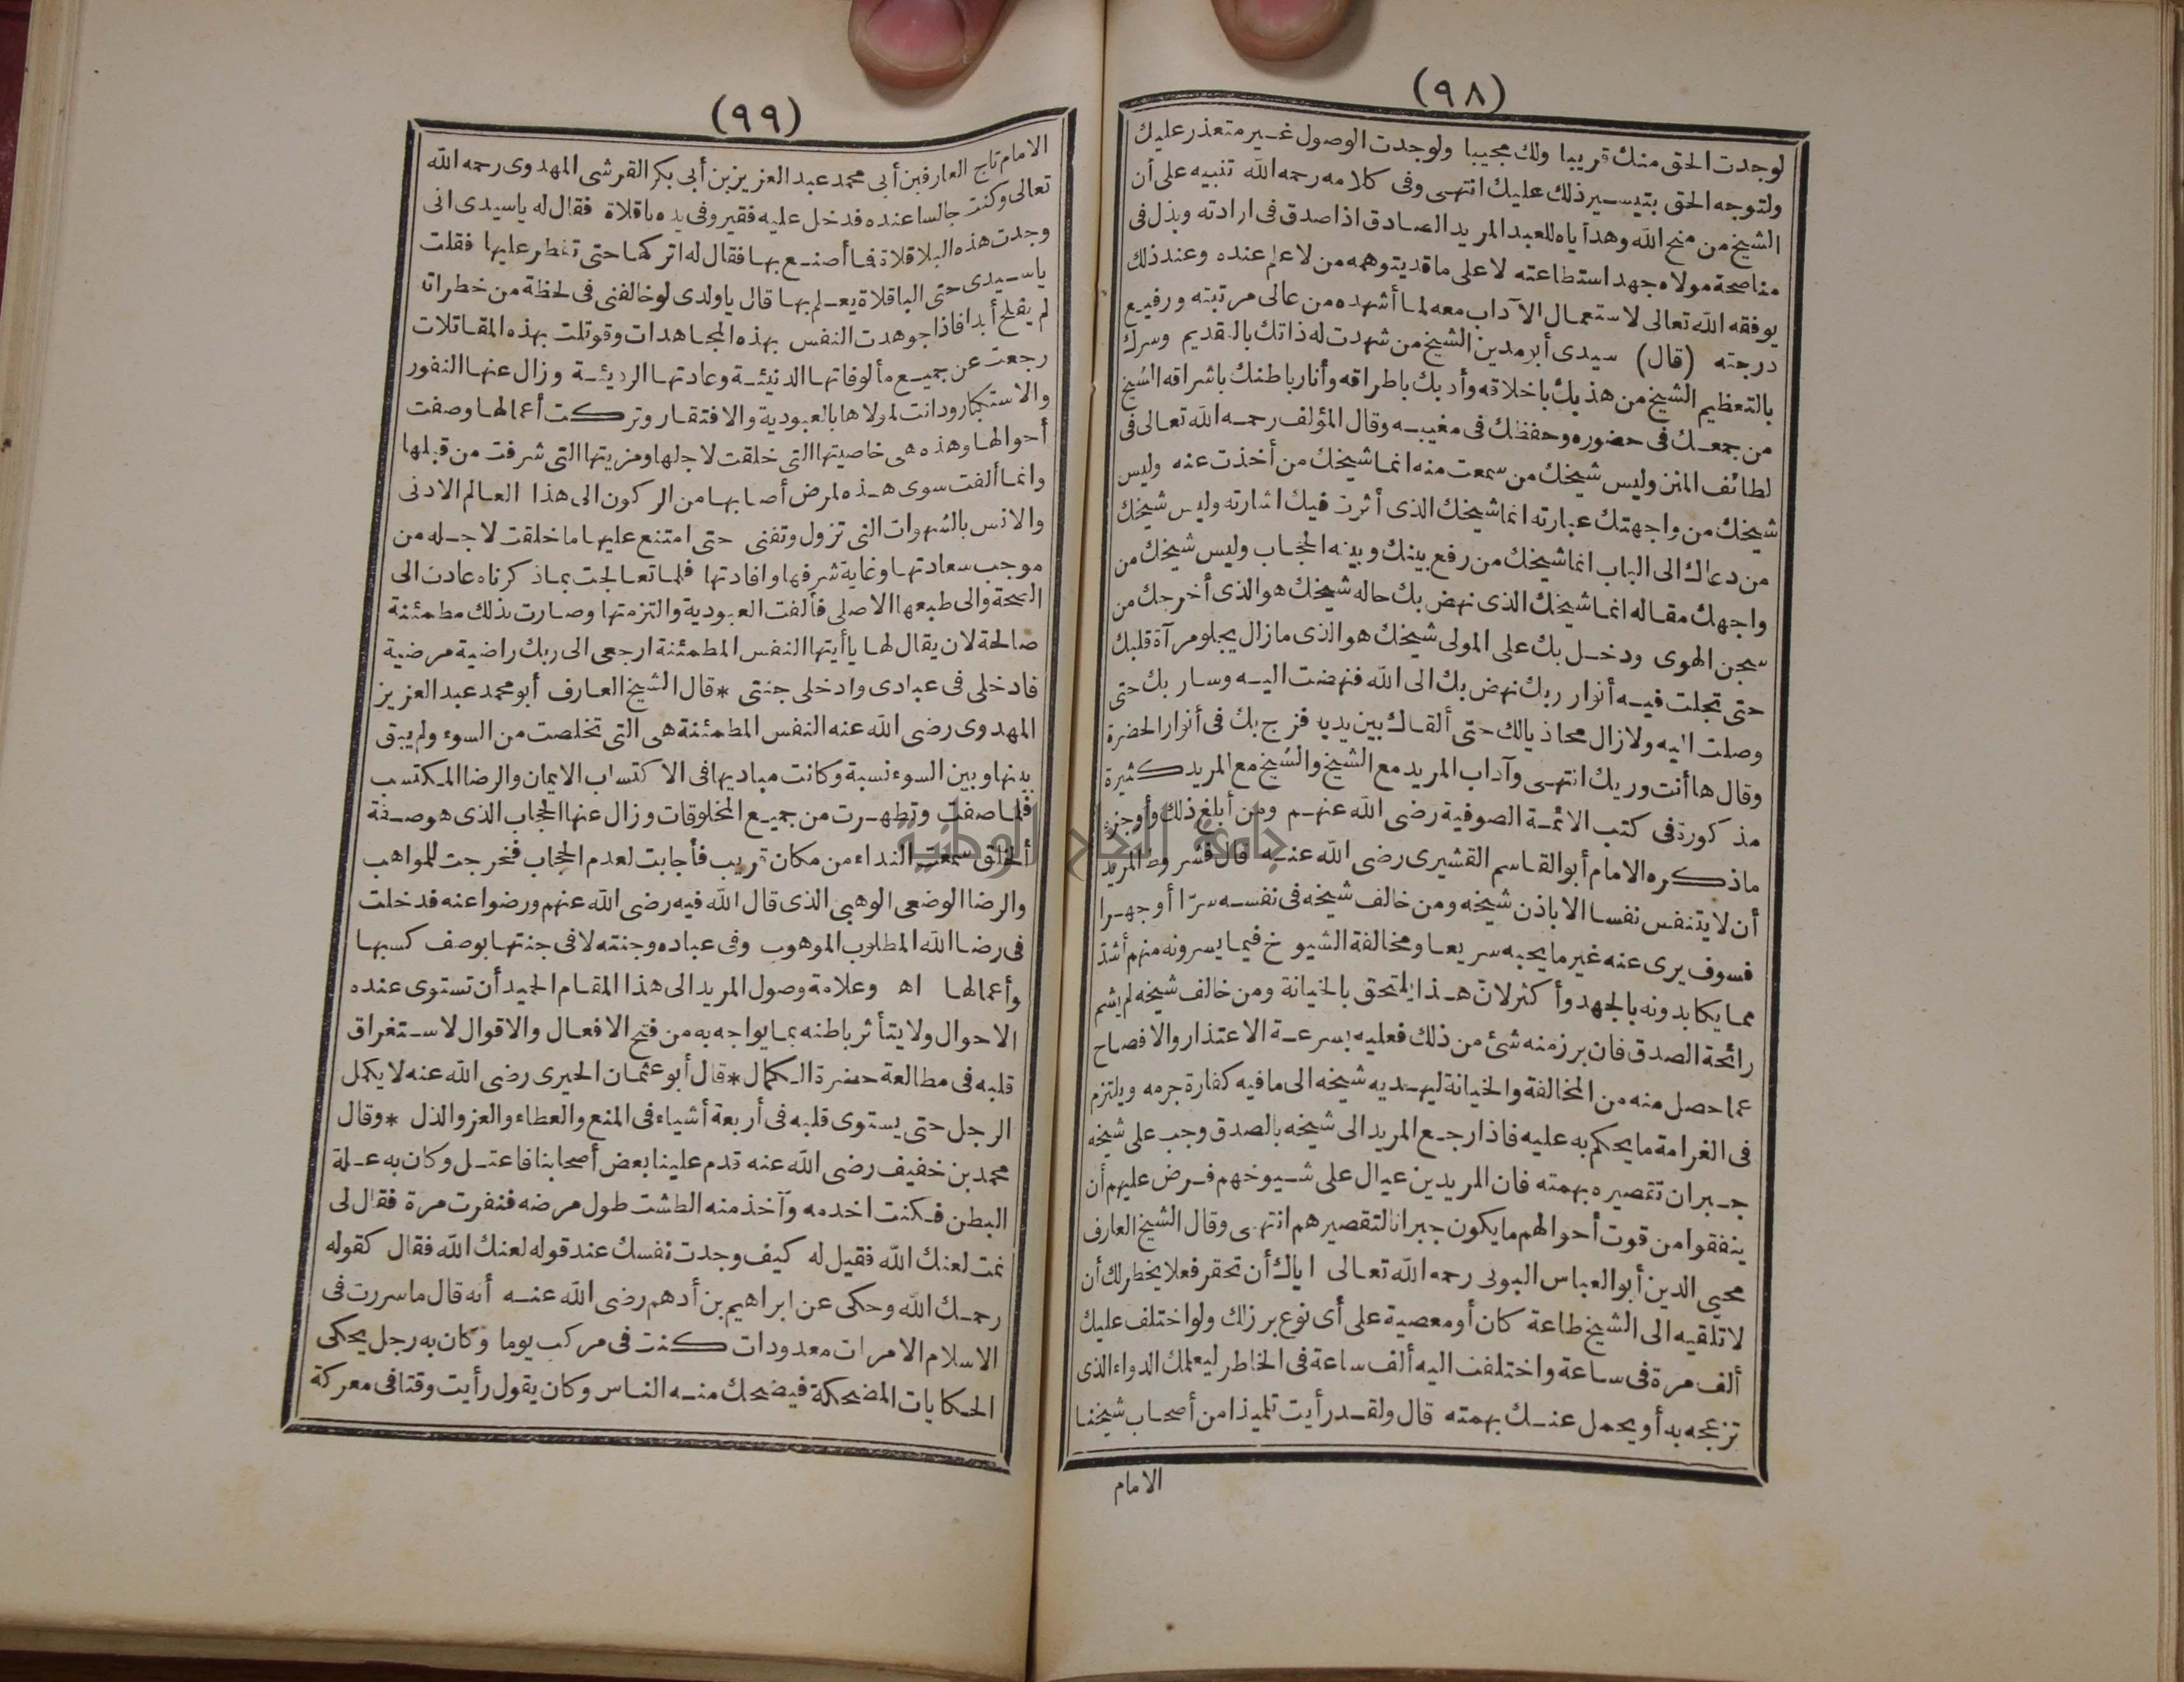 (٩٨)
لوجدت الحق منك قريبا ولك مجيبا ولوجدت الوصول غير متعذر عليك
ولتوجه الحق بتيسير ذلك عليك انتهى وفى كلامه رحمه الله تنبيه على أن
الشيخ من منح الله وهداياه للعبد المريد الصادق اذا صدق فى ارادته وبذل فى
مناصحة مولاه جهد استطاعته لا على ما قد يتوهمه من لا علم عنده وعند ذلك
يوفقه الله تعالى لاستعمال الآداب معه لما أشهده من عالى مرتبته ورفيع
درجته (قال) سيدى أبو مدين الشيخ من شهدت له ذاتك بالتقديم وسرك
بالتعظيم الشيخ من هذبك باخلاقه وأدبك باطراقه وأنار باطنك باشراقه الشيخ
من جمعك فى حضوره وحفظك فى مغيبه وقال المؤلف رحمه الله تعالى فى
لطائف المنن وليس شيخك من سمعت منه انما شيخك من أخذت عنه وليس
شيخك من واجهتك عبارته انما شيخك الذى أثرت فيك اشارته وليس شيخك
من دعاك الى الباب انما شيخك من رفع بينك وبينه الحجاب وليس شيخك من
واجهك مقاله انما شيخك الذى نهض بك حاله شيخك هو الذى أخرجك من
سجن الهوى ودخل بك على المولى شيخك هو الذى مازال يجلو مرآة قلبك
حتى تجلت فيه أنوار ربك نهض بك الى الله فنهضت اليه وسار بك حتى
وصلت اليه ولازال محاذيالك حتى ألقاك بين يديه فزج بك فى أنوار الحضرة
وقال ها أنت وربك انتهى وآداب المريد مع الشيخ والشيخ مع المريد كثيرة
مذكورة فى كتب الائمة الصوفية رضى الله عنهم ومن أبلغ ذلك وأوجزه
ماذكره الامام أبو القاسم القشيرى رضى الله عنه قال فشروط المريد
أن لا يتنفس نفسا الا باذن شيخه ومن خالف شيخه فى نفسه سرّا أو جهرا
فسوف يرى عنه غير ما يحبه سريعا ومخالفة الشيوخ فيما يسرونه منهم أشدّ
مما يكابدونه بالجهد وأكثر لانّ هذا يلتحق بالخيانة ومن خالف شيخه لم يشم
رائحة الصدق فان برزمنه شئ من ذلك فعليه بسرعة الاعتذار والافصاح
عما حصل منه من المخالفة والخيانة ليهديه شيخه الى ما فيه كفارة جرمه ويلتزم
فى الغرامة ما يحكم به عليه فاذا رجع المريد الى شيخه بالصدق وجب على شيخه
جبران تقصيره بهمته فان المريدين عيال على شيوخهم فرض عليهم أن
ينفقوا من قوت أحوالهم ما يكون جبرانا لتقصيرهم انتهى وقال الشيخ العارف
محيي الدين أبو العباس البونى رحمه الله تعالى اياك أن تحقر فعلا يخطر لك أن
لا تلقيه الى الشيخ طاعة كان أو معصية على أى نوع برزلك ولو اختلف عليك
ألف مرة فى ساعة واختلفت اليه ألف ساعة فى الخاطر ليعلمك الدواء الذى
تزعجه به أو يحمل عنك بهمته قال ولقد رأيت تلميذا من أصحاب شيخنا
الامام
(٩٩)
الامام تاج العارفين أبى محمد عبد العزيز بن أبى بكر القرشى المهدوى رحمه الله
تعالى وكنت جالسا عنده فدخل عليه فقير وفى يده باقلاة فقال له ياسيدى انى
وجدت هذه البلاقلاة فما أصنع بها فقال له اتركها حتى تفطر عليها فقلت
ياسيدى حتى الباقلاة يعلم بها قال ياولدى لو خالفنى فى لحظة من خطراته
لم يفلح أبدا فاذا جوهدت النفس بهذه المجاهدات وقوتلت بهذه المقاتلات
رجعت عن جميع مألوفاتها الدنيئة وعادتها الرديئة وزال عنها النفور
والاستكبار ودانت لمولاها بالعبودية والافتقار وتركت أعمالها وصفت
أحوالها وهذه هى خاصيتها التى خلقت لاجلها ومزيتها التى شرفت من قبلها
وانما ألفت سوى هذه لمرض أصابها من الركون الى هذا العالم الادنى
والانس بالشهوات التى تزول وتفنى حتى امتنع عليها ما خلقت لاجله من
موجب سعادتها وغاية شرفها وافادتها فلما تعالجت بماذكرناه عادت الى
الصحة والى طبعها الاصلى فألفت العبودية والتزمتها وصارت بذلك مطمئنة
صالحة لان يقال لها يا أيتها النفس المطمئنة ارجعى الى ربك راضية مرضية
فادخلى فى عبادى وادخلى جنتى * قال الشيخ العارف أبو محمد عبد العزيز
المهدوى رضى الله عنه النفس المطمئنة هى التى تخلصت من السوء ولم يبق
بينها وبين السوء نسبة وكانت مباديها فى الاكتساب الايمان والرضا المكتسب
فلما صفت وتطهرت من جميع المخلوقات وزال عنها الحجاب الذى هو صفة
الخلق سمعت النداء من مكان قريب فأجابت لعدم الحجاب فخرجت للمواهب
والرضا الوضعى الوهبى الذى قال الله فيه رضى الله عنهم ورضوا عنه فدخلت
فى رضا الله المطلوب الموهوب وفى عباده وجنته لا فى جنتها بوصف كسبها
وأعمالها اه وعلامة وصول المريد الى هذا المقام الحميد أن تستوى عنده
الاحوال ولا يتأثر باطنه بما يواجه به من قبح الافعال والاقوال لاستغراق
قلبه فى مطالعة حضرة الكمال * قال أبو عثمان الحيرى رضى الله عنه لا يكمل
الرجل حتى يستوى قلبه فى أربعة أشياء فى المنع والعطاء والعز والذل * وقال
محمد بن خفيف رضى الله عنه قدم علينا بعض أصحابنا فاعتل وكان به علة
البطن فكنت اخدمه وآخذ منه الطشت طول مرضه فنفرت مرة فقال لى
نمت لعنك الله فقيل له كيف وجدت نفسك عند قوله لعنك الله فقال كقوله
رحمك الله وحكى عن ابراهيم بن أدهم رضى الله عنه أنه قال ما سررت فى
الاسلام الا مرات معدودات كنت فى مركب يوما وكان به رجل يحكى
الحكايات المضحكة فيضحك منه الناس وكان يقول رأيت وقتا فى معركة
جامعة النجاح الوطنية